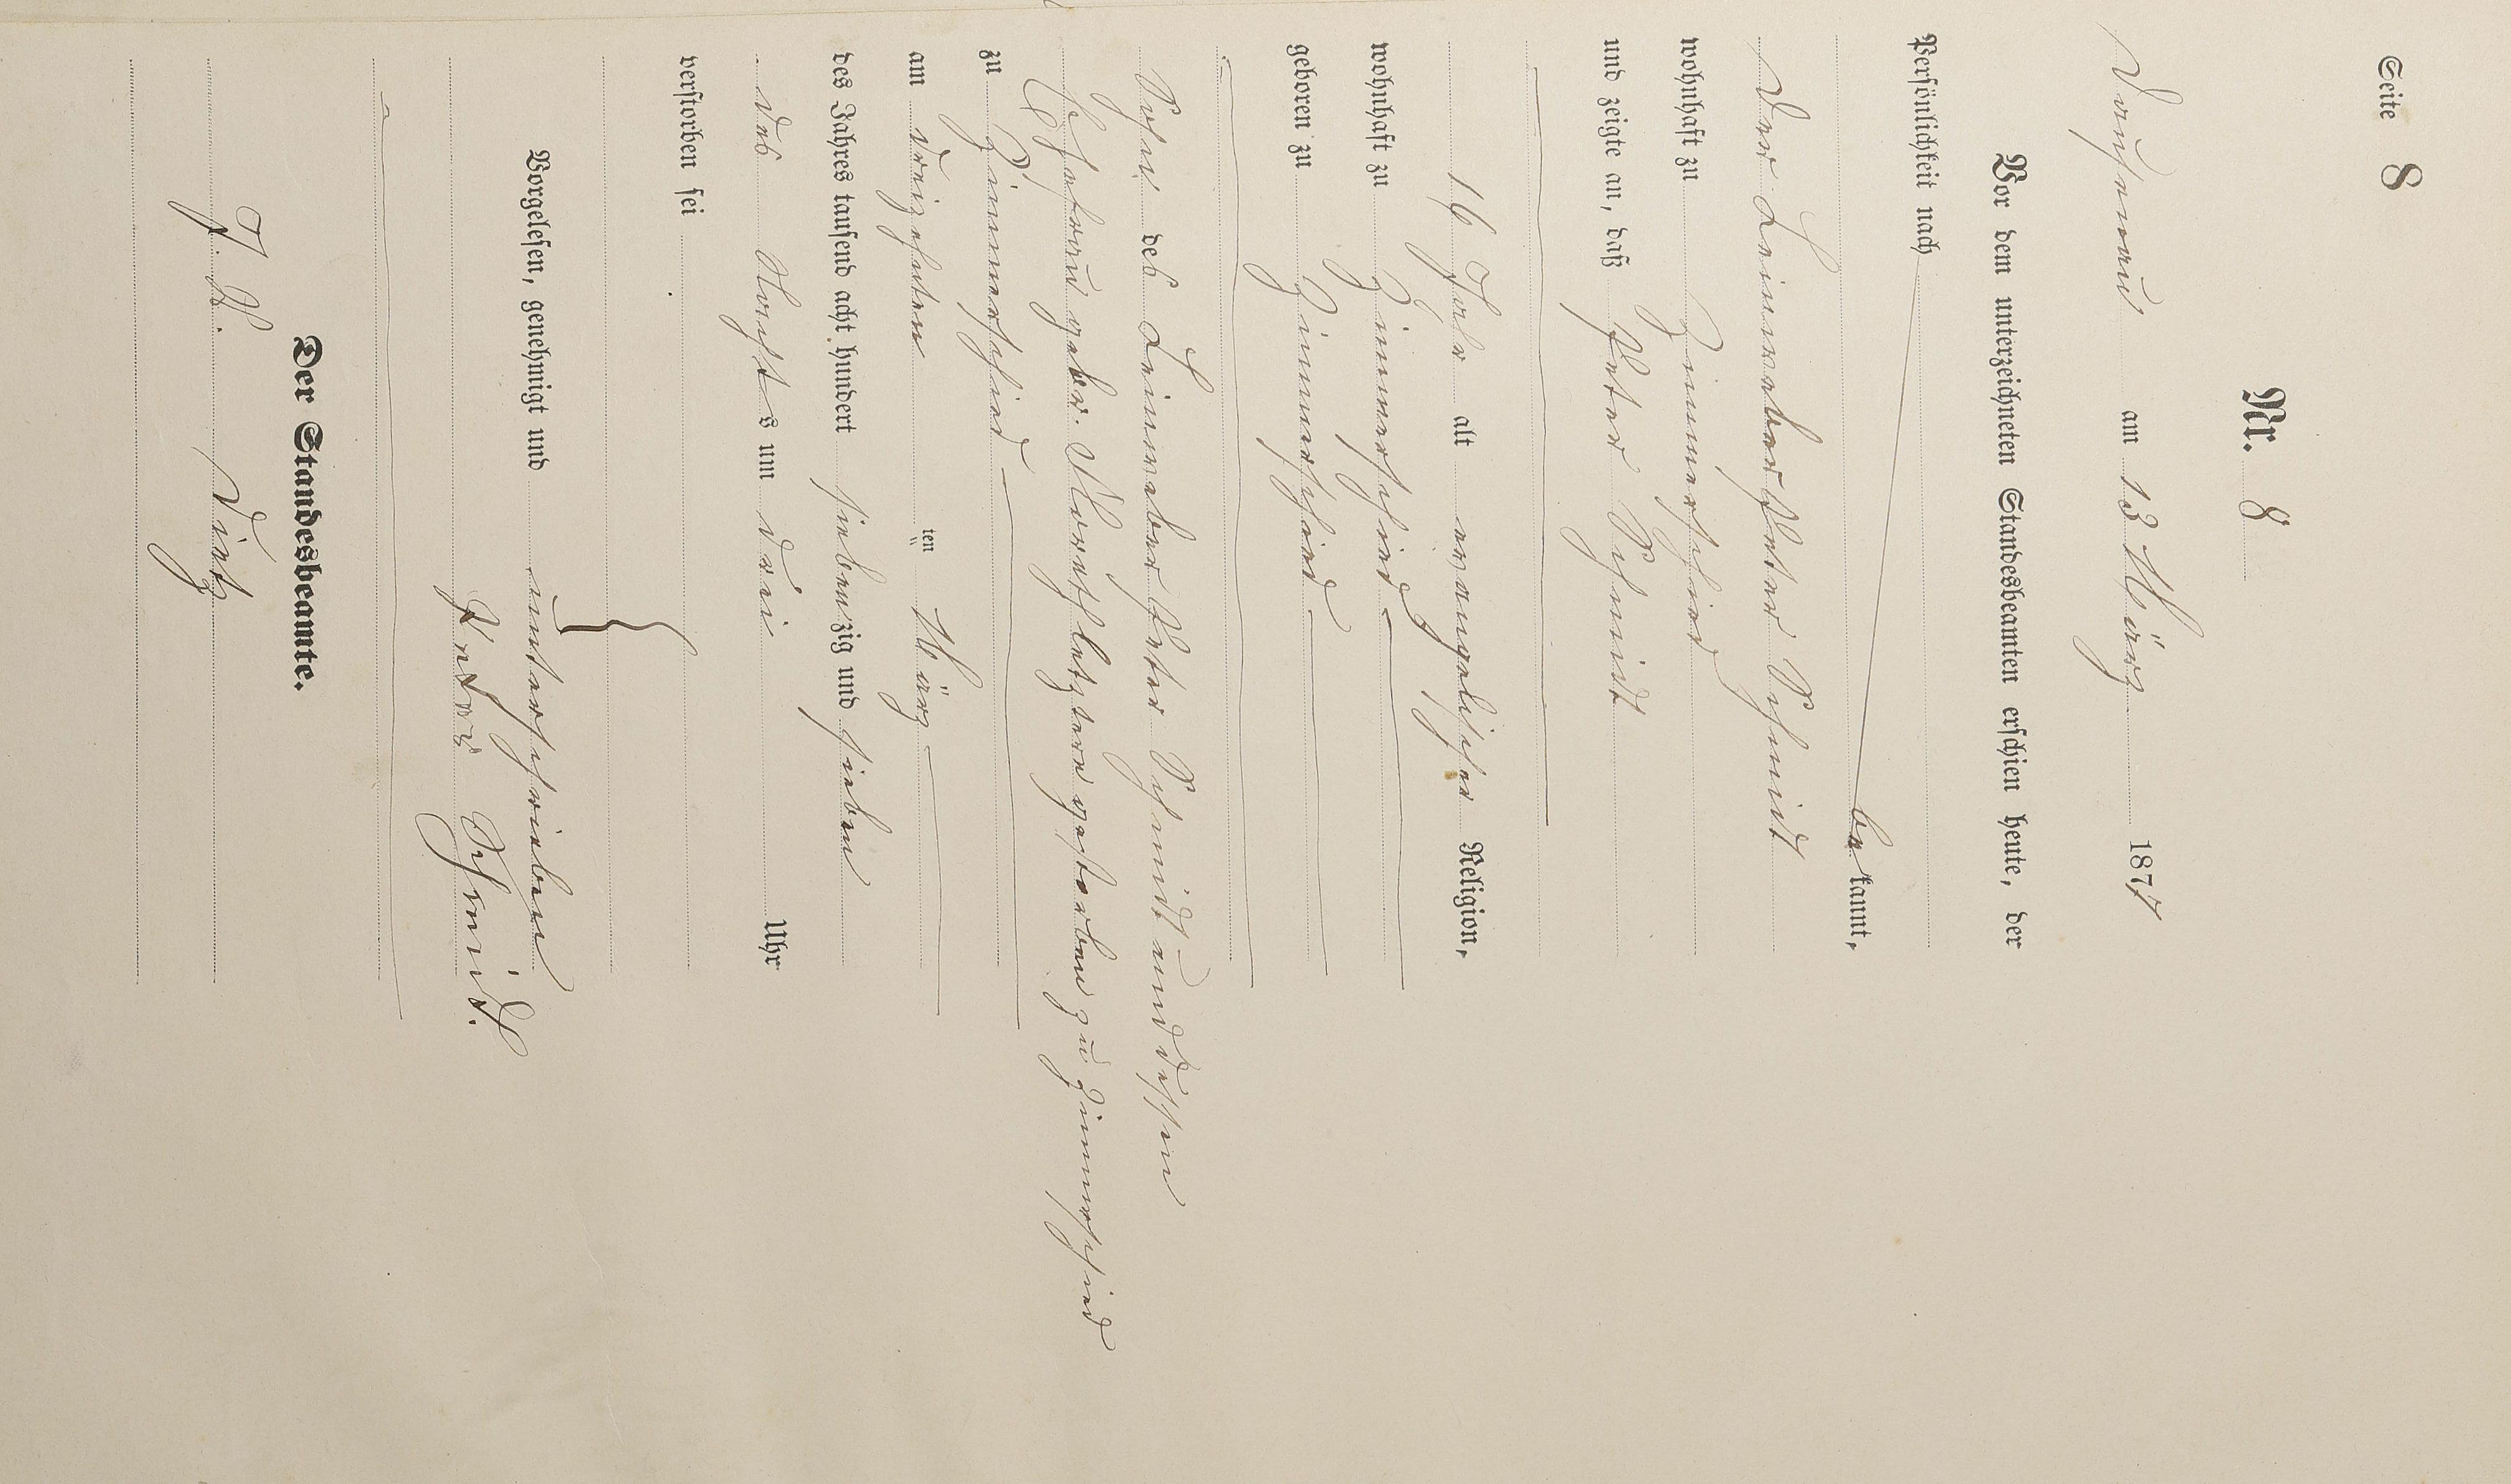 Seite 8
Nr. 8
Dausenau am 13 März 1877
Vor dem unterzeichneten Standesbeamten erschien heute, der
Persönlichkeit nach
bekannt,
der Leinweber Peter Schmidt
wohnhaft zu Zimmerschied
und zeigte an, daß Peter Schmidt
16 Jahr alt evangelischer Religion,
wohnhaft zu Zimmerschied
geboren zu Zimmerschied
Sohn des Leinweber Peter Schmidt und dessen
Ehefrau gebr. letztere gestorben zu Zimmerschied
zu Zimmerschied
am dreizehnten ten März
des Jahres tausend acht hundert siebenzig und sieben
des Nachts um drei Uhr
verstorben sei
Vorgelesen, genehmigt und unterschrieben
Peter Schmidt.
Der Standesbeamte.
J. V. Dietz